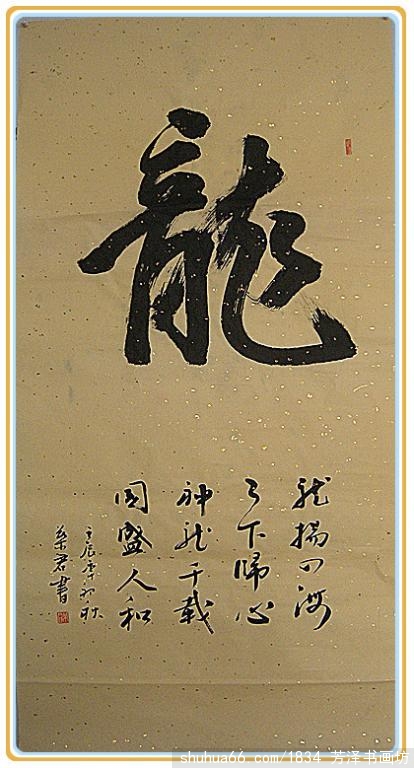 龍
龙揚四海
天下歸心
神龙千載
國盛人和
壬辰年初秋
君書
shuhua66.com/1834 芳泽书画坊